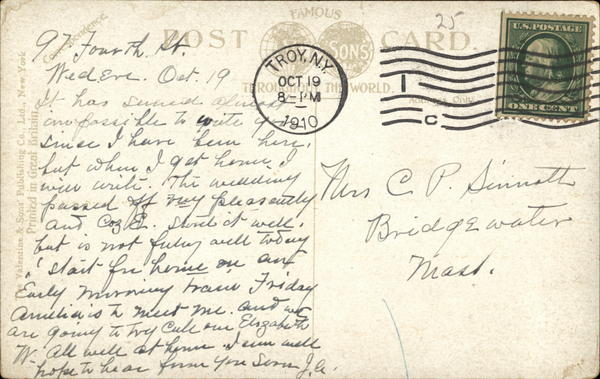 25
FAMOUS
POST CARD.
SONS
THROUGHOUT THE WORLD.
Correspondence.
Valentine & Sons' Publishing Co., Ltd., New York
Printed in Great Britain.
U.S. POSTAGE
ONE CENT
TROY, N.Y.
OCT 19
8-PM
1910
1
C
97 Fourth St.
Wed Eve. Oct. 19
It has seemed almost
impossible to write you
since I have been here,
but when I get home I
will write. The wedding
passed off very pleasantly
and Coz E. stood it well,
but is not feeling well today
I start for home on an
Early morning train Friday
Amelia is to meet me and we
are going to try call on Elizabeth
W. All well at home. I am well
hope to hear from you soon J.A.
Mrs C. P. Sinnott
Bridgewater
Mass.